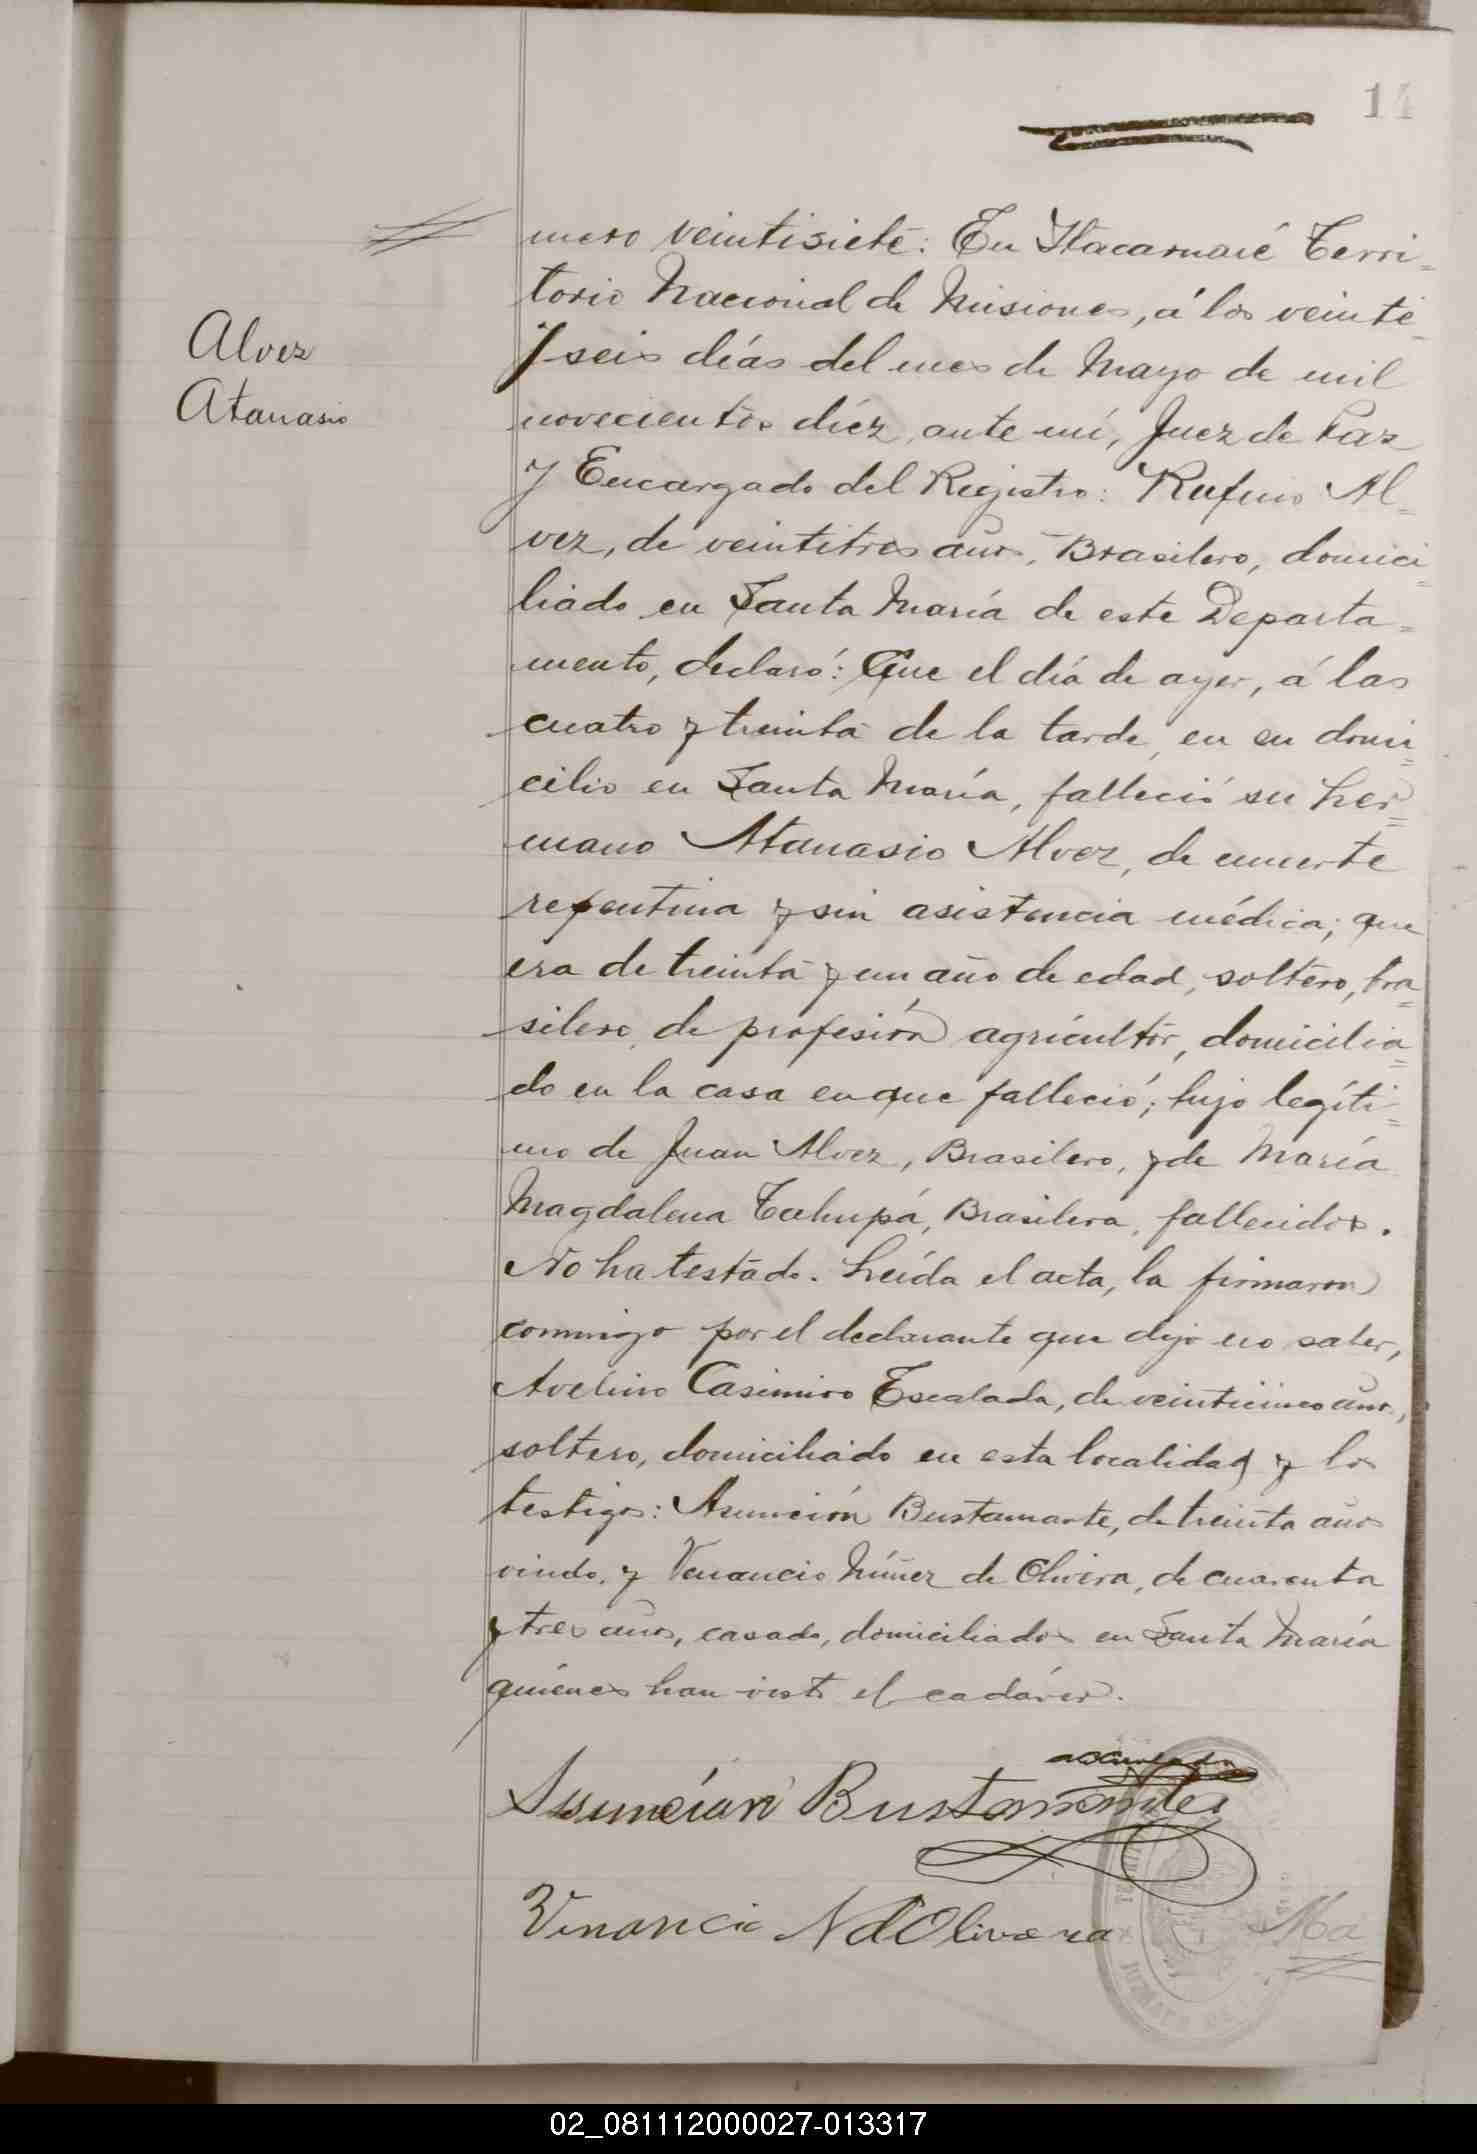 14
mero veintisiete: En Itacaruaré Terri-
torio Nacional de Misiones, á los veinte
y seis días del mes de Mayo de mil
novecientos diéz, ante mí, Juez de Paz
Alvez
Atanasio
y Encargado del Registro: Rufino Al-
vez, de veintitres años, Brasilero, domici-
liado en Santa María de este Departa-
mento, declaró: Que el día de ayer, á las
cuatro y treinta de la tarde, en su domi-
cilio en Santa María, falleció su her-
mano Atanasio Alvez, de muerte
repentina y sin asistencia médica; que
era de treinta y un año de edad, soltero, bra-
silero, de profesión agricultor, domicilia-
do en la casa en que falleció; hijo legíti-
mo de Juan Alvez, Brasilero, y de María
Magdalena Brasilera, fallecidos.
No ha testado. Leída el acta, la firmaron
conmigo por el declarante que dijo no saber,
Avelino Casimiro Escalada, de veinticinco años,
soltero, domiciliado en esta localidad y los
testigos: Asunción Bustamante, de treinta años
viudo, y Venancio Núñez de Olivera, de cuarenta
y tres años, casado, domiciliados en Santa María
quiénes han visto el cadáver.
Asunción Bustamante
Venancio N d Olivera
Ma
02_081112000027-013317